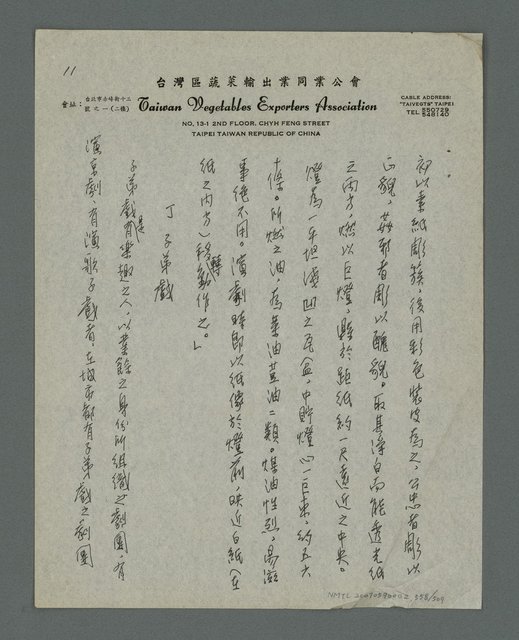 11
台灣區蔬菜輸出業同業公會
會址：台北市赤峰街十三號之一(二樓)
Taiwan Vegetables Exporters Association
CABLE ADDRESS:
"TAIVEGTS" TAIPEI
TEL 550729
548140
NO. 13-1 2ND FLOOR, CHYH FENG STREET
TAIPEI TAIWAN REPUBLIC OF CHINA
初以素紙彫簇，後用彩色裝皮為之，公忠者彫以
正貌，姦邪者彫以醜貌。取其淨白而能透光紙
之兩方，燃以巨燈，懸於距紙約一尺遠近之中央。
燈為一平坦淺凹之瓦盒，中貯燈心一巨束，約五六
十條。所燃之油，為菜油荳油二類。煤油性烈，易滋
事絕不用。演劇時即以紙像於燈前，映近白紙（在
紙之內方）移轉動作之。」
丁 子弟戲
子弟戲是有樂趣之人，以業餘之身份所組織之劇團，有
演京劇，有演歌子戲者，在城市都有子弟戲之劇團
NMTL 20090590002 358/509